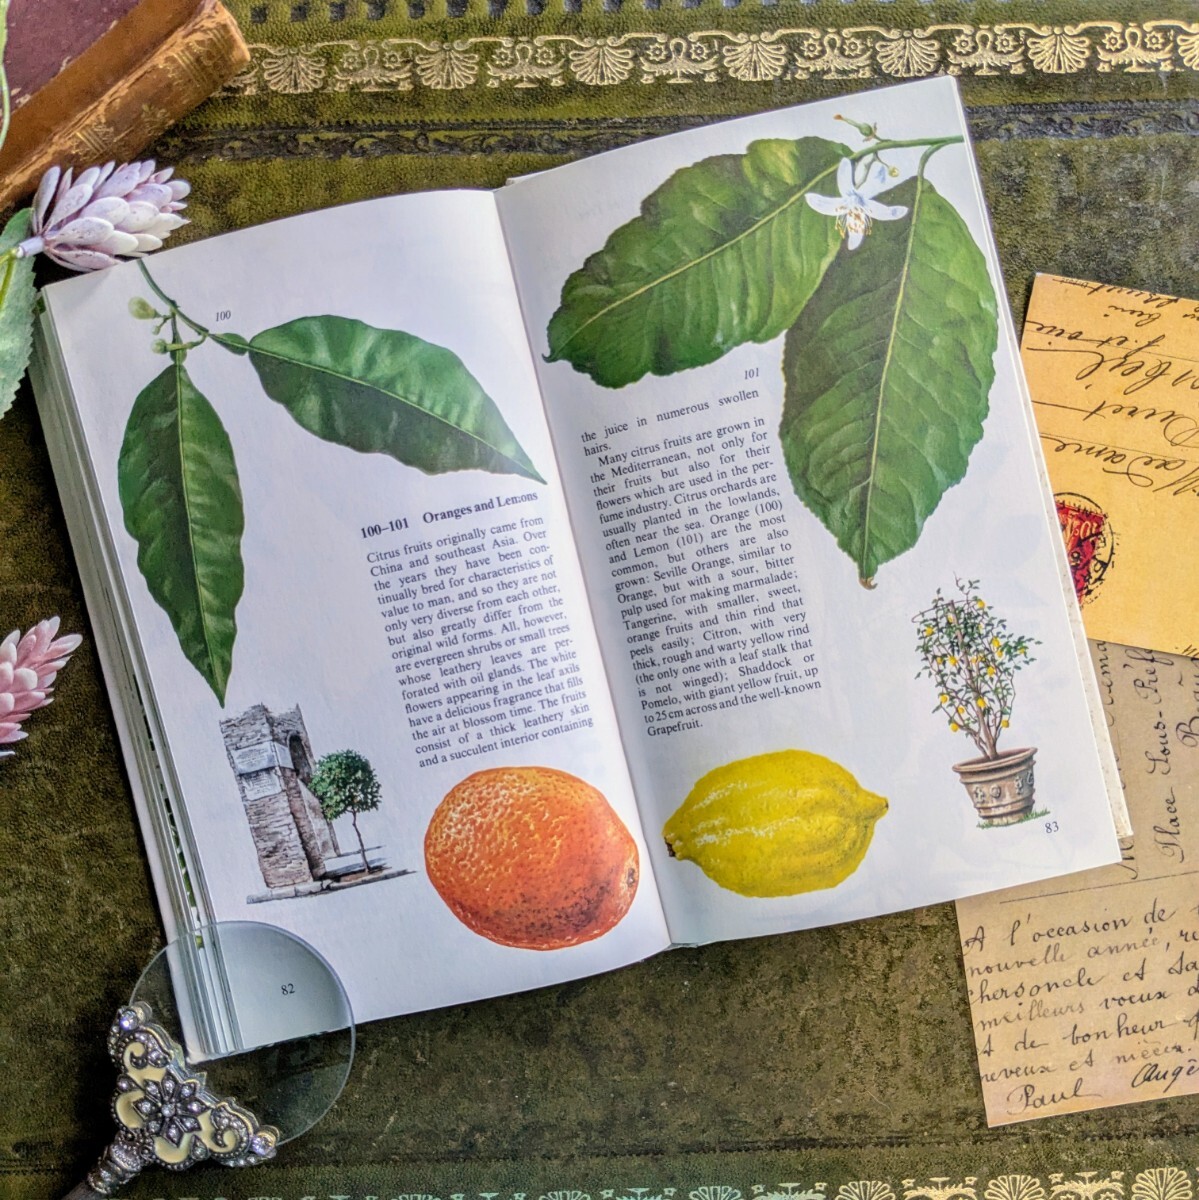 100
100–101 Oranges and Lemons
Citrus fruits originally came from
China and southeast Asia. Over
the years they have been con-
tinually bred for characteristics of
value to man, and so they are not
only very diverse from each other,
but also greatly differ from the
original wild forms. All, however,
are evergreen shrubs or small trees
whose leathery leaves are per-
forated with oil glands. The white
flowers appearing in the leaf axils
have a delicious fragrance that fills
the air at blossom time. The fruits
consist of a thick leathery skin
and a succulent interior containing
82
101
the juice in numerous swollen
hairs.
Many citrus fruits are grown in
the Mediterranean, not only for
their fruits but also for their
flowers which are used in the per-
fume industry. Citrus orchards are
usually planted in the lowlands,
often near the sea. Orange (100)
and Lemon (101) are the most
common, but others are also
grown: Seville Orange, similar to
Orange, but with a sour, bitter
pulp used for making marmalade;
Tangerine, with smaller, sweet,
orange fruits and thin rind that
peels easily; Citron, with very
thick, rough and warty yellow rind
(the only one with a leaf stalk that
is not winged); Shaddock or
Pomelo, with giant yellow fruit, up
to 25 cm across and the well-known
Grapefruit.
83
Madame
Place Sous-Préf
A l'occasion de
nouvelle année,
et
meilleurs voeux
de bonheur
neveux et nièces.
Paul Angè